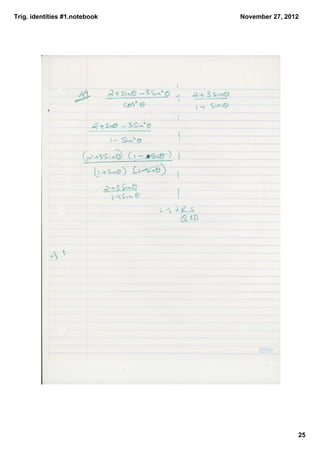 Trig. identities #1.notebook
November 27, 2012
49. (2 + sinθ − 3sin²θ) / cos²θ = (2 + 3sinθ) / (1 + sinθ)
(2 + sinθ − 3sin²θ) / (1 − sin²θ)
(2 + 3sinθ)(1 − sinθ) / (1 + sinθ)(1 − sinθ)
(2 + 3sinθ) / (1 + sinθ)
L.S = R.S
QED
25